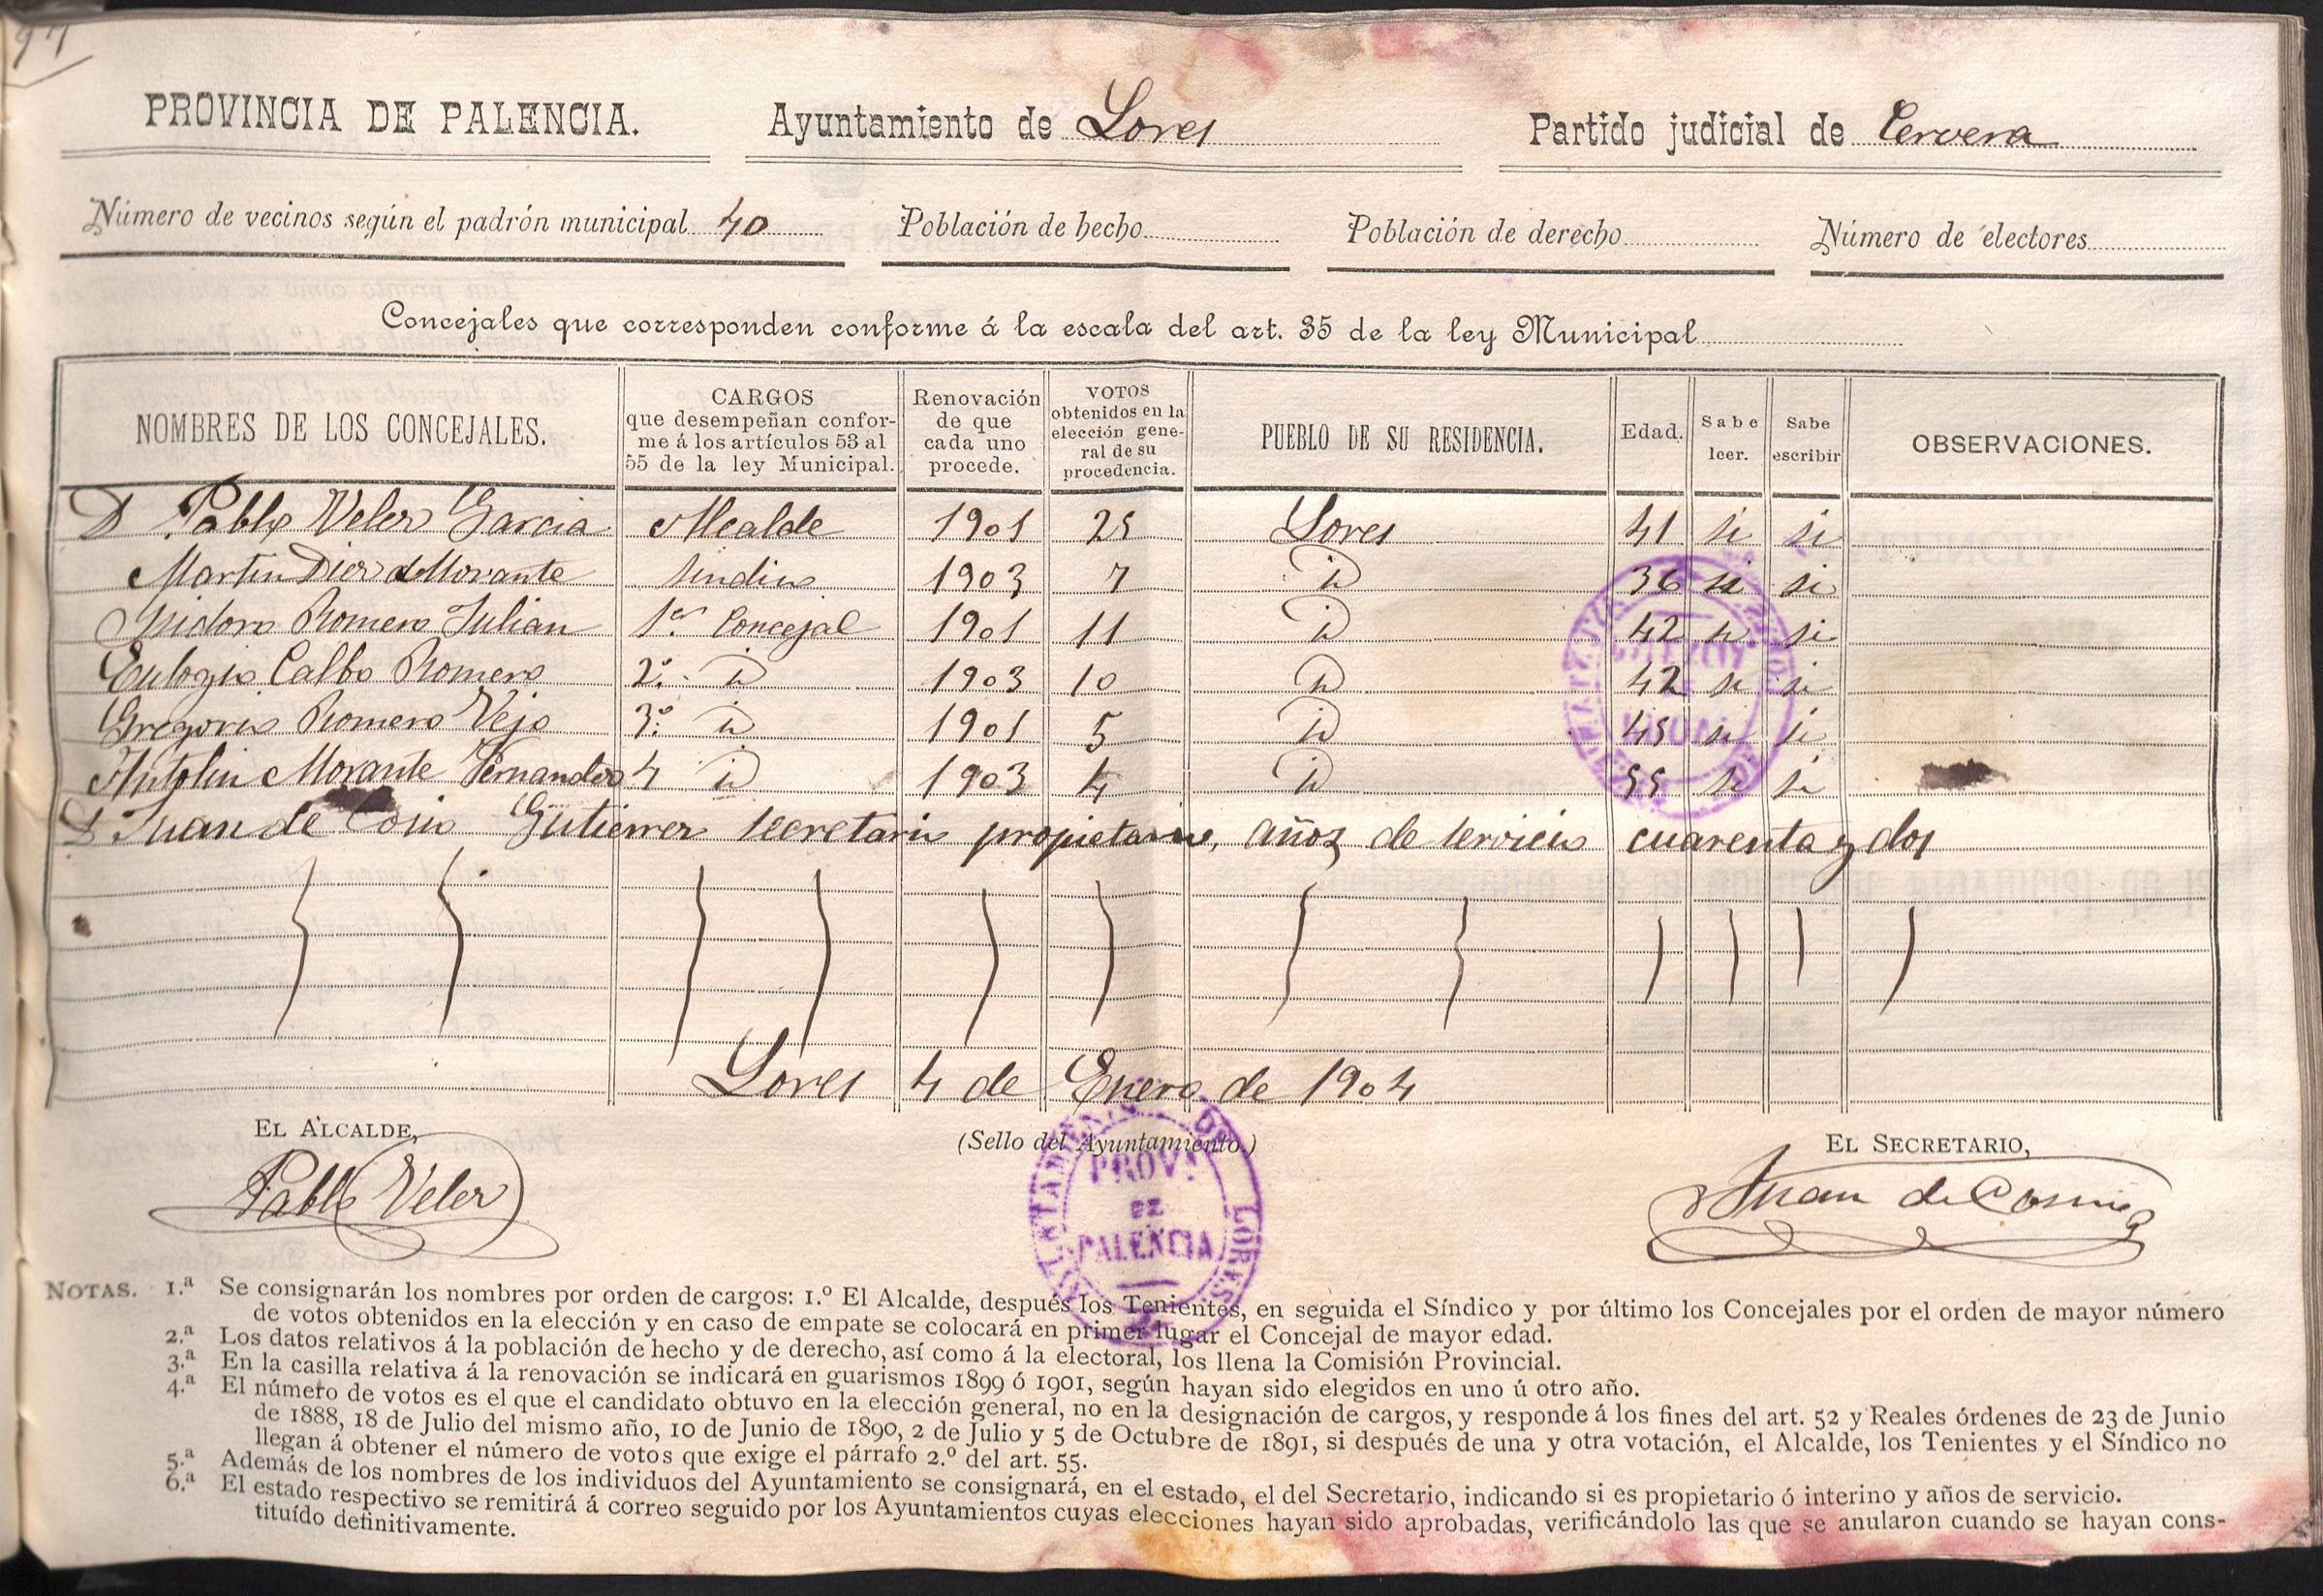 97
PROVINCIA DE PALENCIA. Ayuntamiento de Lores Partido judicial de Cervera
Número de vecinos según el padrón municipal 40 Población de hecho Población de derecho Número de electores
Concejales que corresponden conforme á la escala del art. 35 de la ley Municipal
NOMBRES DE LOS CONCEJALES.
CARGOS
que desempeñan confor-
me á los artículos 53 al
55 de la ley Municipal.
Renovación
de que
cada uno
procede.
VOTOS
obtenidos en la
elección gene-
ral de su
procedencia.
PUEBLO DE SU RESIDENCIA.
Edad.
Sabe
leer.
Sabe
escribir
OBSERVACIONES.
D Pablo Velez Garcia Alcalde 1901 25 Lores 41 si si
Martin Diez Morante Sindico 1903 7 id 36 si si
Isidoro Romero Julian 1er Concejal 1901 11 id 42 si si
Eulogio Calbo Romero 2º id 1903 10 id 42 si si
Gregorio Romero Vejo 3º id 1901 5 id 45 si si
Antolin Morante Fernandez 4 id 1903 4 id 55 si si
D Juan de Cosio Gutierrez secretario propietario, años de servicio cuarenta y dos
Lores 4 de Enero de 1904
EL ALCALDE,
(Sello del Ayuntamiento.)
EL SECRETARIO,
Pablo Velez
Juan de Cosio
AYUNTAMIENTO DE LORES
PROVA
DE
PALENCIA
NOTAS. 1.ª Se consignarán los nombres por orden de cargos: 1.º El Alcalde, después los Tenientes, en seguida el Síndico y por último los Concejales por el orden de mayor número
de votos obtenidos en la elección y en caso de empate se colocará en primer lugar el Concejal de mayor edad.
2.ª Los datos relativos á la población de hecho y de derecho, así como á la electoral, los llena la Comisión Provincial.
3.ª En la casilla relativa á la renovación se indicará en guarismos 1899 ó 1901, según hayan sido elegidos en uno ú otro año.
4.ª El número de votos es el que el candidato obtuvo en la elección general, no en la designación de cargos, y responde á los fines del art. 52 y Reales órdenes de 23 de Junio
de 1888, 18 de Julio del mismo año, 10 de Junio de 1890, 2 de Julio y 5 de Octubre de 1891, si después de una y otra votación, el Alcalde, los Tenientes y el Síndico no
llegan á obtener el número de votos que exige el párrafo 2.º del art. 55.
5.ª Además de los nombres de los individuos del Ayuntamiento se consignará, en el estado, el del Secretario, indicando si es propietario ó interino y años de servicio.
6.ª El estado respectivo se remitirá á correo seguido por los Ayuntamientos cuyas elecciones hayan sido aprobadas, verificándolo las que se anularon cuando se hayan cons-
tituído definitivamente.